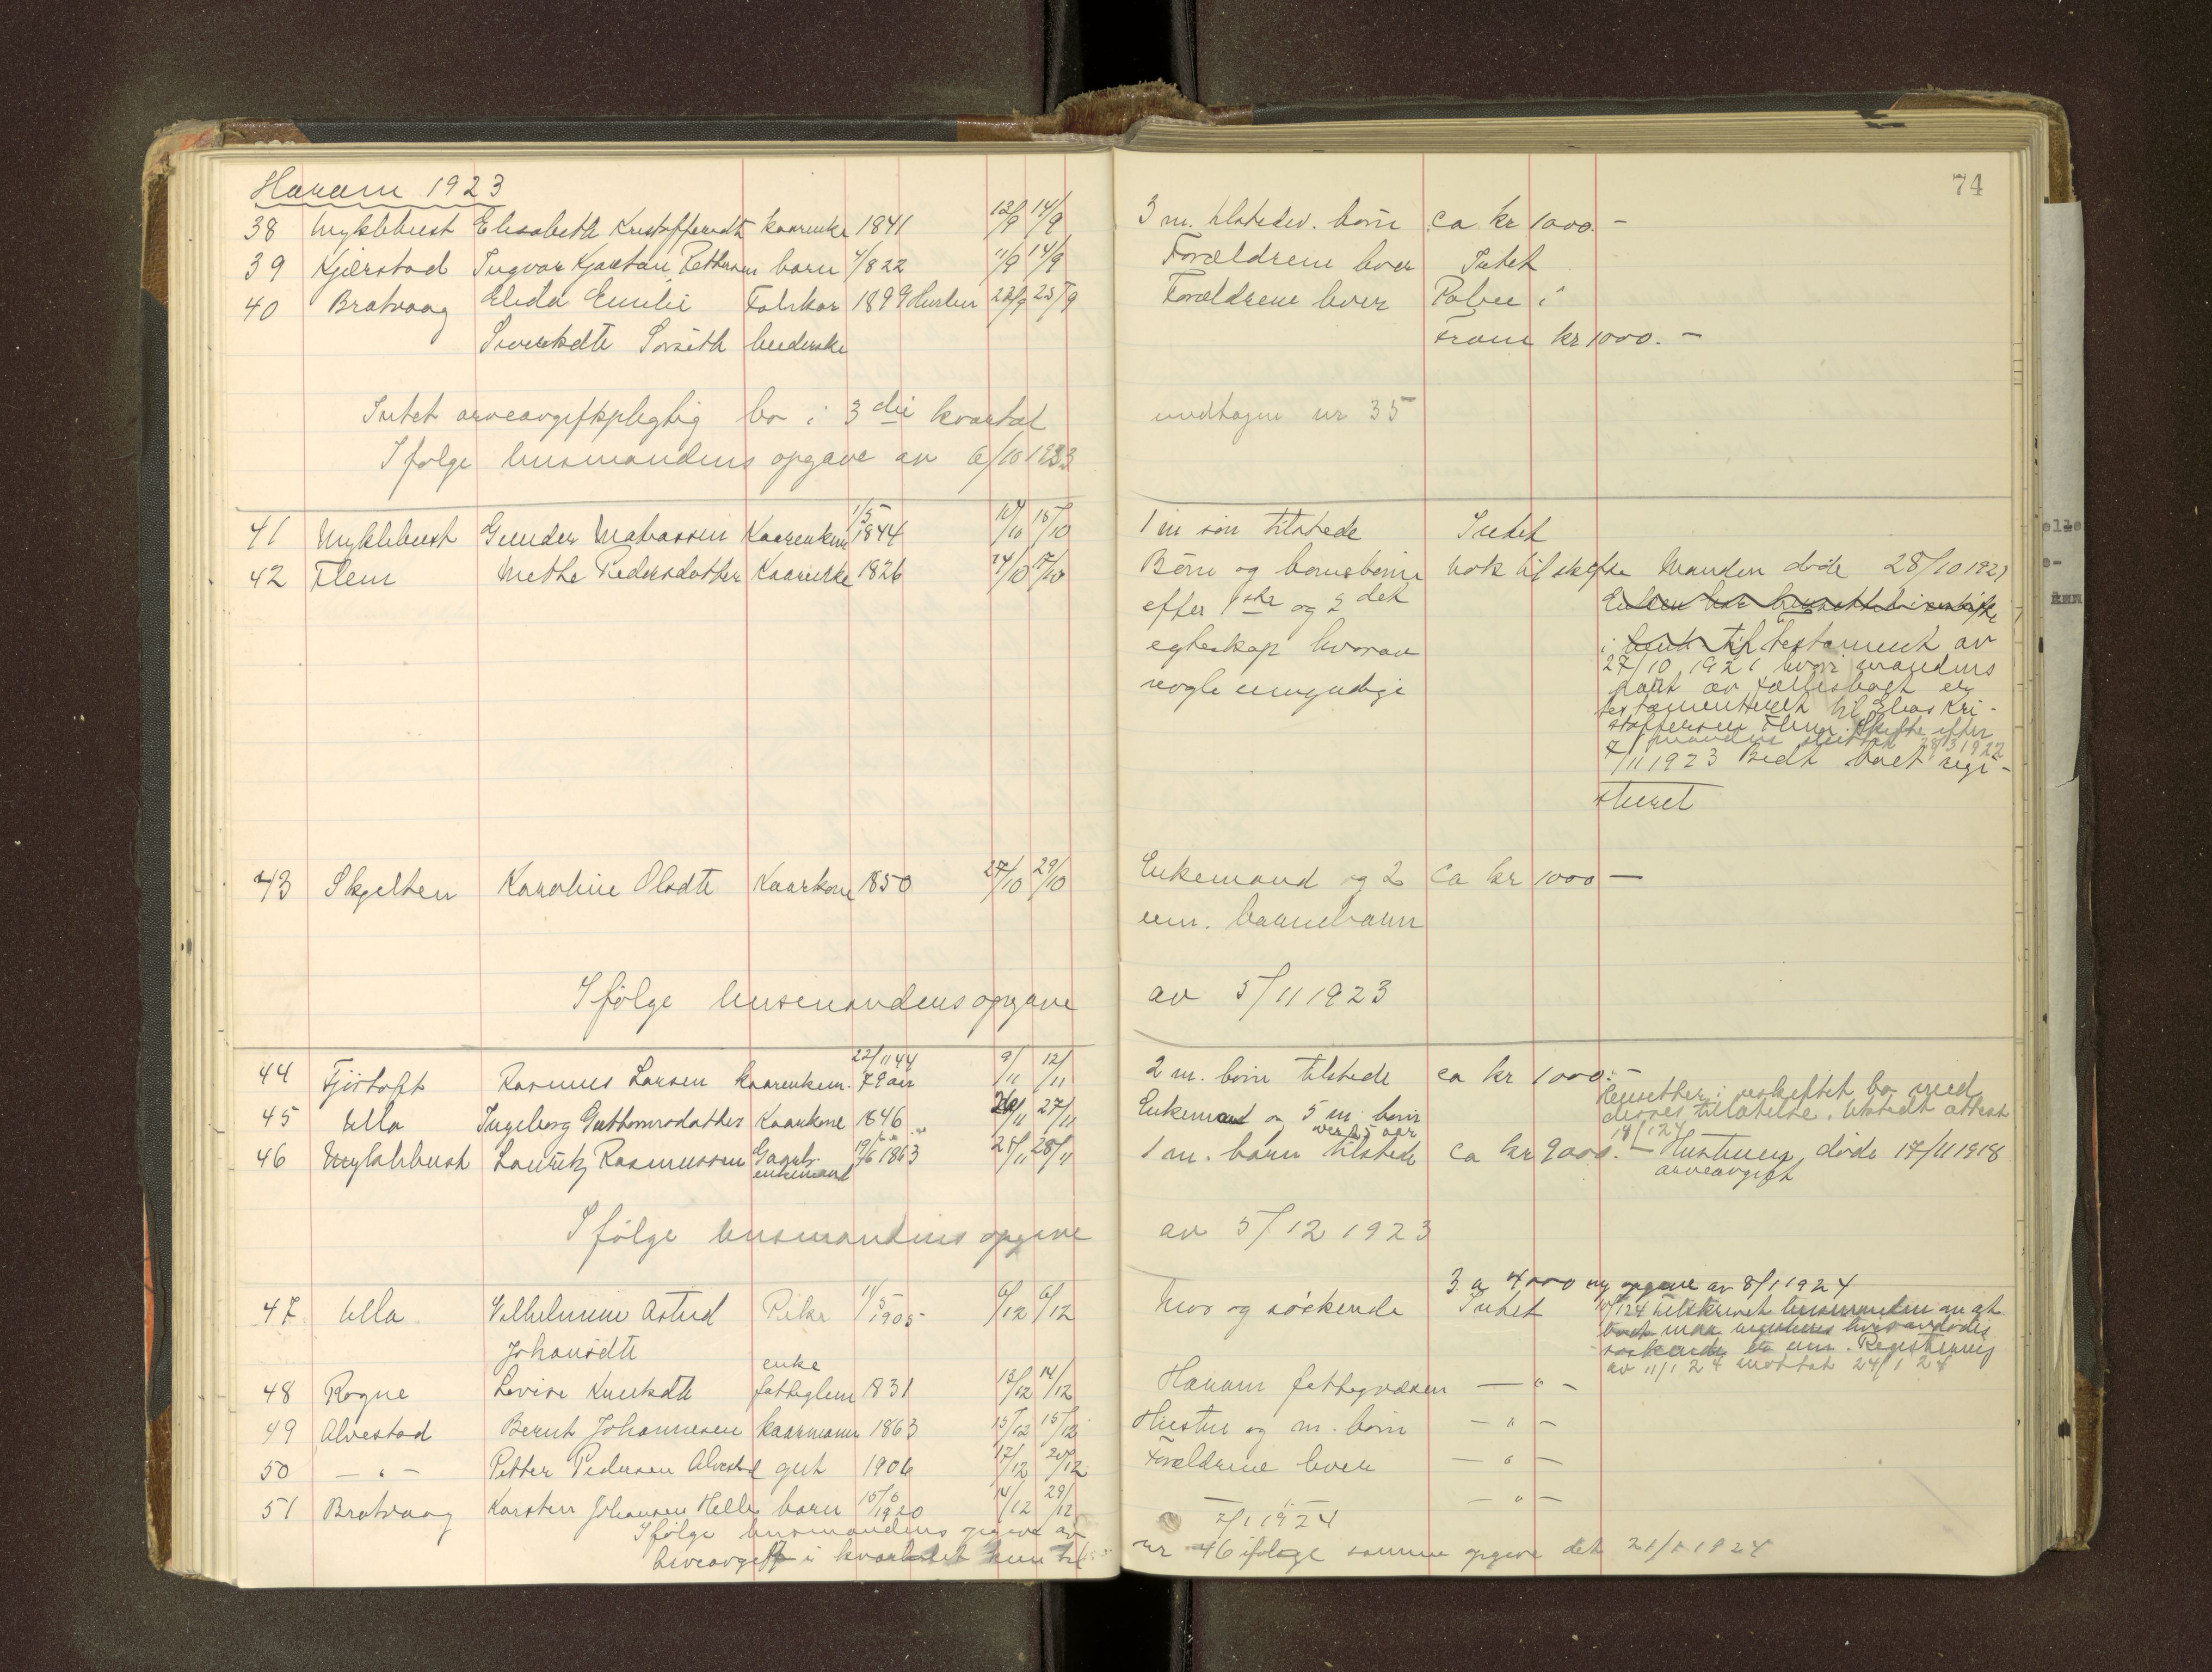 Haram 1923
74
38 Myklebust Elisabeth Kristoffersdtr kaarenke 1841 12/9 14/9 3 m. tilstedev. børn ca kr 1000.-
39 Kjærstad Ingvar Kjartan Pettersen barn 4/8 22 11/9 14/9 Forældrene lever Intet
40 Bratvaag Elida Emilie Fabrikar 1899 22/9 25/9 Forældrene lever
Sivertsdtr Sorseth beiderske kr 1000.-
Intet arveavgiftspligtig bo i 3die kvartal undtagen nr 35
Ifølge lensmandens opgave av 6/10 1923
41 Myklebust Gunder Kaarenkem 1/5 1844 10/10 15/10 1 m søn tilstede Intet
42 Flem Methe Pedersdatter Kaarenke 1826 14/10 17/10 Børn og barnebørn nok til skifte Manden døde 28/10 1921
efter 1ste og 2det
egteskap hvorav i testament av
nogle umyndige 27/10 1921 hvori mandens
part av fællesboet er
testamenteret til Elias Kri-
stoffersen Flem. Skifte efter
manden sluttet 28/3 1922
7/11 1923 Bedt boet regi-
streret
43 Skjelten Karoline Olsdtr Kaarkone 1850 27/10 29/10 Enkemand og 2 ca kr 1000 -
um. barnebarn
Ifølge lensmandens opgave av 5/11 1923
44 Fjørtoft Rasmus Larsen kaarenkem. 22/11 44 79 aar 9/11 12/11 2 m. børn tilstede ca kr 1000.-
45 Ulla Ingeborg Guttormsdatter Kaarkone 1846 26/11 27/11 Enkemand og 5 m. børn Hensitter i uskiftet bo med
over 25 aar deres tillatelse. Utstedt attest
18/1 24
46 Myklebust Lauritz Rasmussen Gaardb. 19/6 1863 25/11 28/11 1 m. barn tilstede ca kr 9000.- Hustruen døde 17/11 1918
enkemand arveavgift
Ifølge lensmandens opgave av 5/12 1923
3 a 4000 ny opgave av 8/1 1924
47 Ulla Vilhelmine Astrid Pike 11/5 1905 6/12 6/12 Mor og søskende Intet 10/1 24 tilskrevet lensmanden om at
Johansdtr boet maa registreres hvis avdødes
søskende er um. Registrering
av 11/1 24 mottat 24/1 24
48 Rogne Lovise Knutsdtr enke fattiglem 1831 13/12 14/12 Haram fattigvæsen - " -
49 Alvestad Bernt Johannesen kaarmann 1863 15/12 15/12 Hustru og m. børn - " -
50 - " - Petter Pedersen Alvestad gut 1906 17/12 20/12 Forældrene lever - " -
51 Bratvaag Karsten Johansen Helle barn 15/6 1920 14/12 29/12 - " - - " -
Ifølge lensmandens opgave av 2/1 1924
Arveavgift i kvartalet kun til nr 46 ifølge samme opgave det 21/1 1924
elle
e-